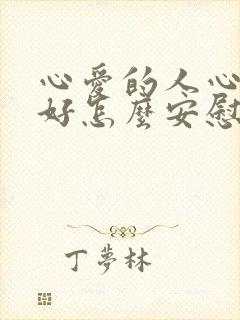 心愛的人心
好怎麼安慰
丁夢林